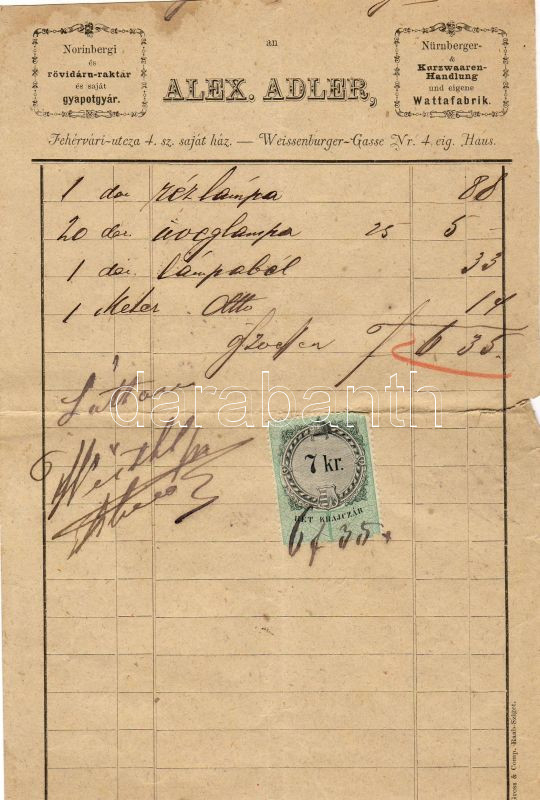 an
Norinbergi
és
rövidáru-raktár
és saját
gyapotgyár.
ALEX. ADLER,
Nürnberger-
&
Kurzwaaren-
Handlung
und eigene
Wattafabrik.
Fehérvári-utcza 4. sz. saját ház. — Weissenburger-Gasse Nr. 4. eig. Haus.
1 dar rézlámpa 88
20 dar üveglámpa 25 5 -
1 dar lámpaból 33
1 Meter 14
f 6 35.
Láttam
darabanth
7 kr.
HÉT KRAJCZÁR
6 f 35
Gross & Comp. Raab-Sziget.